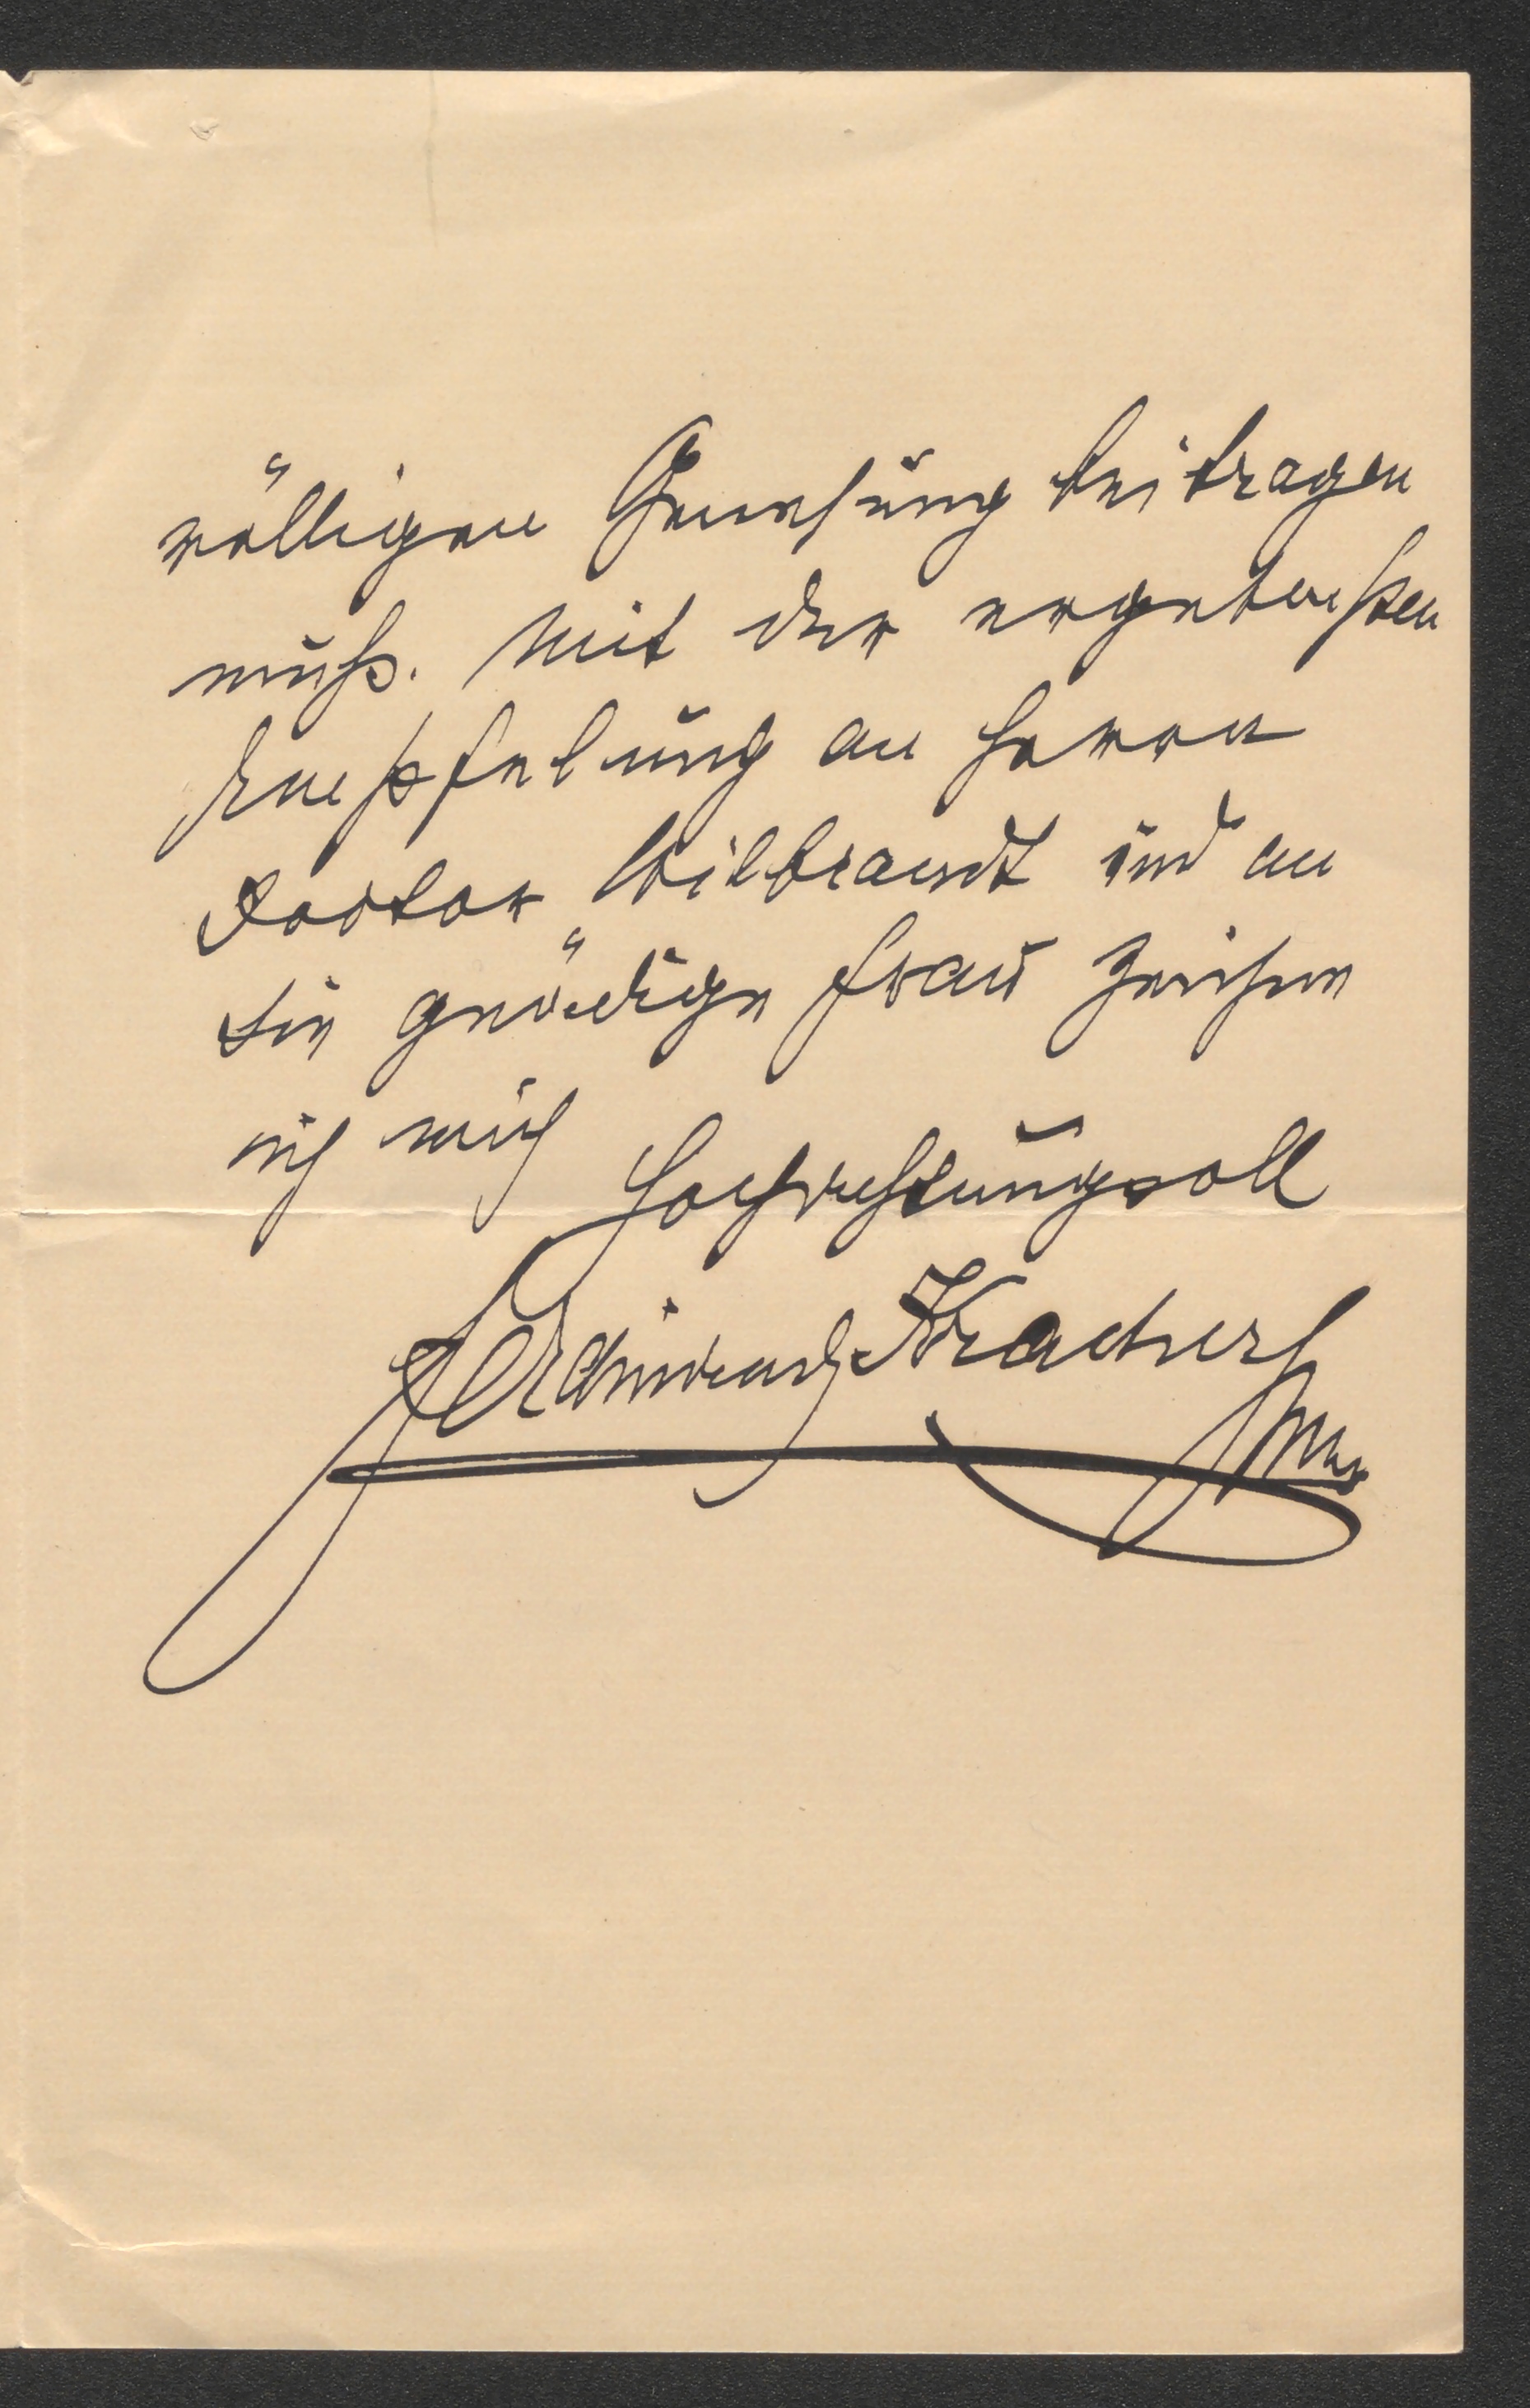 völligen Genesung beitragen
muß. Mit der ergebensten
Empfelung an Herrn
Doctor Wilbrandt und an
Sie gnädige Frau zeichne
ich mich
Hochachtungsvoll
Ferdinand Kracher